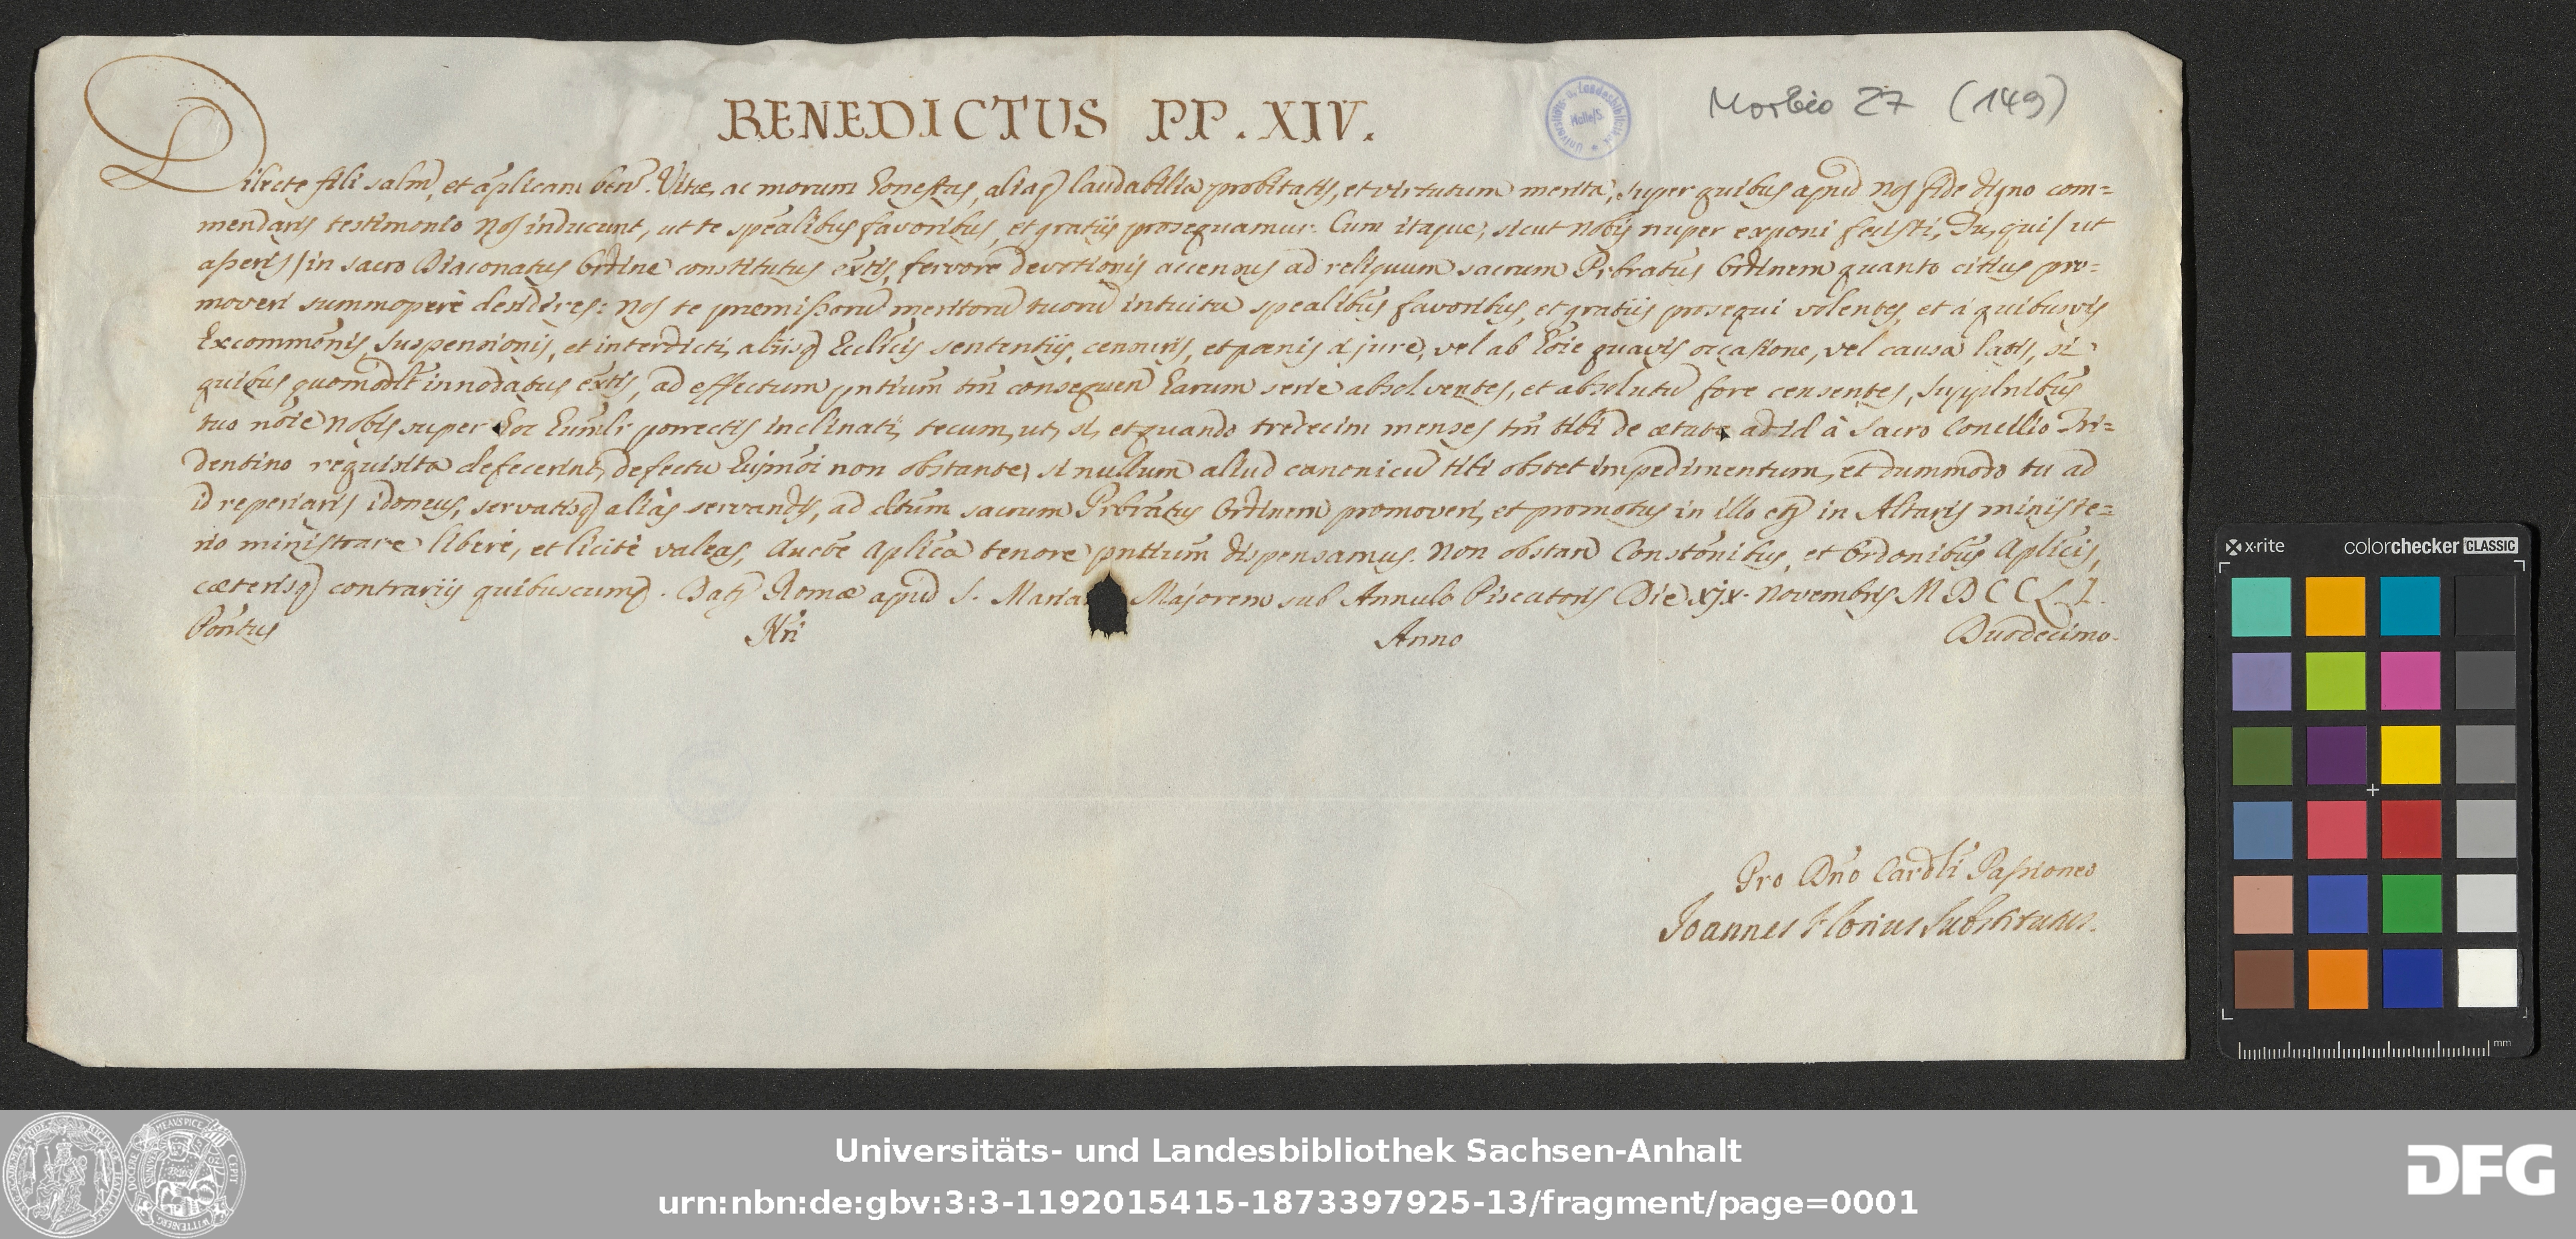 BENEDICTUS PP. XIV.
Morbio 27 (149)
Universitäts- u. Landesbibliothek Halle/S.
Dilecte fili salm̄, et ap̄licam ben̄. Vitæ, ac morum honestas, aliaq̃ laudabilia probitatis, et virtutum merita, super quibus apud Nos fide digno com=
mendaris testimonio Nos inducunt, ut te spēalibus favoribus, et gratiis prosequamur. Cum itaque, sicut Nobis nuper exponi fecisti, Tu, qui/ ut
asseris/ in sacro Diaconatus Ordine constitutus exīstis, fervore devotionis accensus ad reliquum sacrum Prb̄ratus Ordinem quanto citius pro=
moveri summopere desideres: Nos te præmissorū meritorū tuorū intuitu spēalibus favoribus, et gratiis prosequi volentes, et a quibusvis
Excommōnis, Suspensionis, et interdicti, aliisq̃ Ecclīcis sententiis, censuris, et pœnis a jure, vel ab hōie quavis occasione, vel causa latis, si
quibus quomōdlt̄ innodatus exīstis, ad effectum pn̄tium tm̄ consequen̄ harum serie absolventes, et absolutū fore censentes, Supplnībus
tuo nōie Nobis super hoc humlr̄ porrectis inclinati, tecum, ut, si, et quando tredecim menses tm̄ tibi de ætate ad id à Sacro Concilio Tri=
dentino requisita defecerint, defectu hujmōi non obstante, si nullum aliud canonicū tibi obstet impedimentum, et dummodo tu ad
id reperiaris idoneus, servatisq̃ aliàs servandis, ad dictum sacrum Prb̄ratus Ordinem promoveri, et promotus in illo et̄ in Altaris ministe=
rio ministrare liberè, et licitè valeas, Auctē Ap̄lica tenore pn̄tium dispensamus. Non obstan̄ Constōnibus, et Ordōnibus Ap̄licis,
cæterisq̃ contrariis quibuscumq̃. Dat̄ Romæ apud S. Maria Majorem sub Annulo Piscatoris Die xjx. Novembris MDCCLI.
Pontus Nr̄i Anno Duodecimo.
Pro Dn̄o Cardlī Passioneo
Joannes Florius Substitutus.
x·rite colorchecker CLASSIC
mm
Universitäts- und Landesbibliothek Sachsen-Anhalt
urn:nbn:de:gbv:3:3-1192015415-1873397925-13/fragment/page=0001
DFG